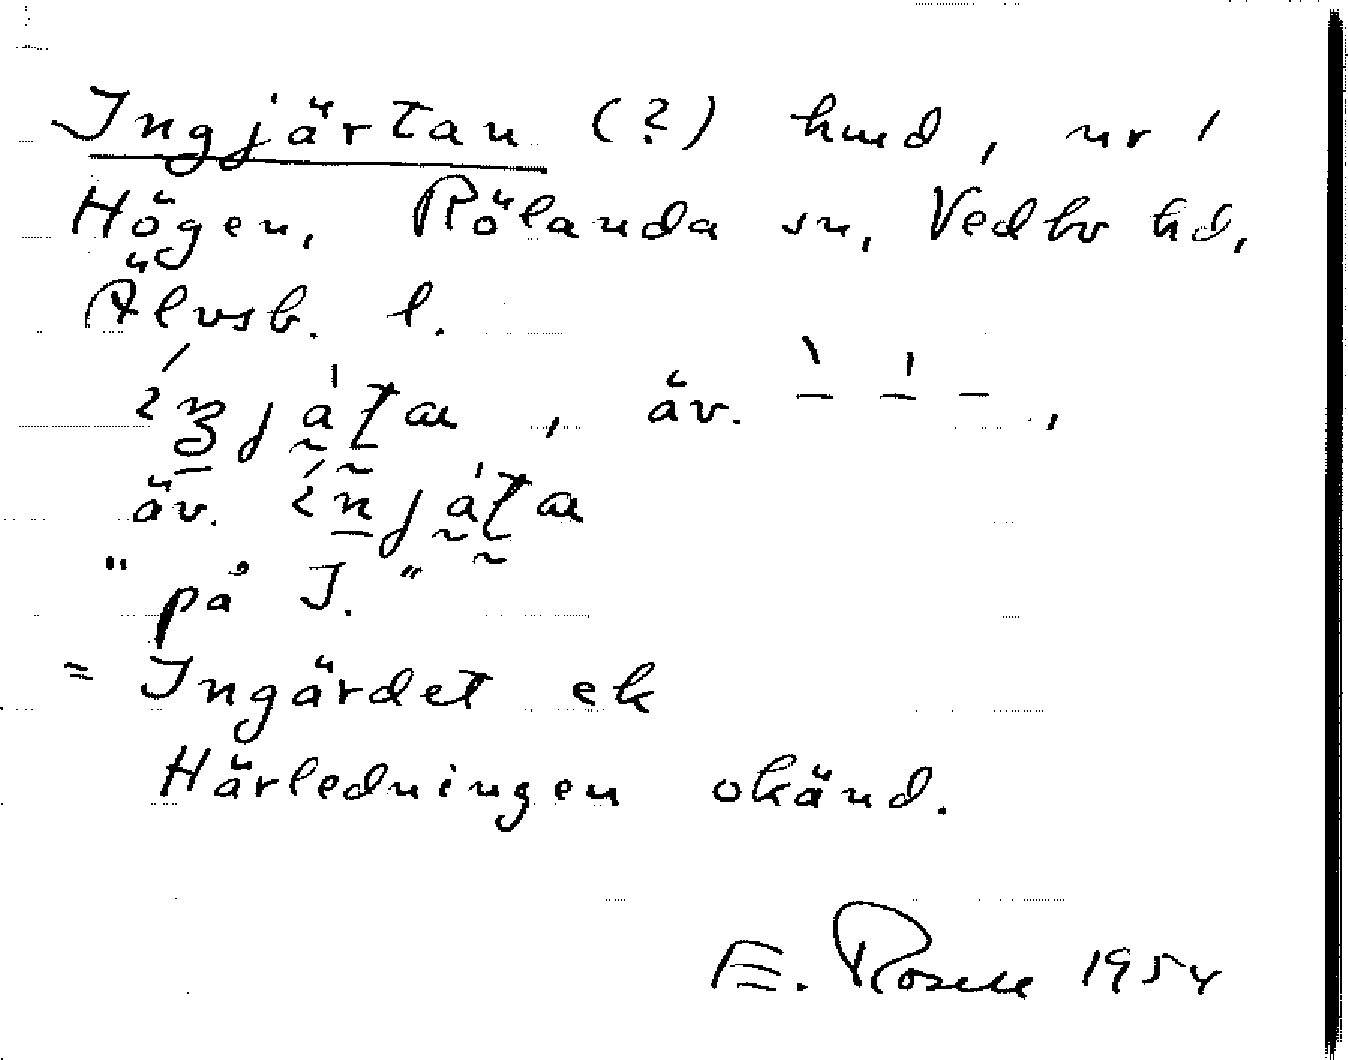 Ingjärtan (?) hmd, nr 1
Högen, Rölanda sn, Vedbo hd,
Älvsb. l.
äv.
äv.
"på I."
= Ingärdet ek
Härledningen okänd.
E. Rosell 1954